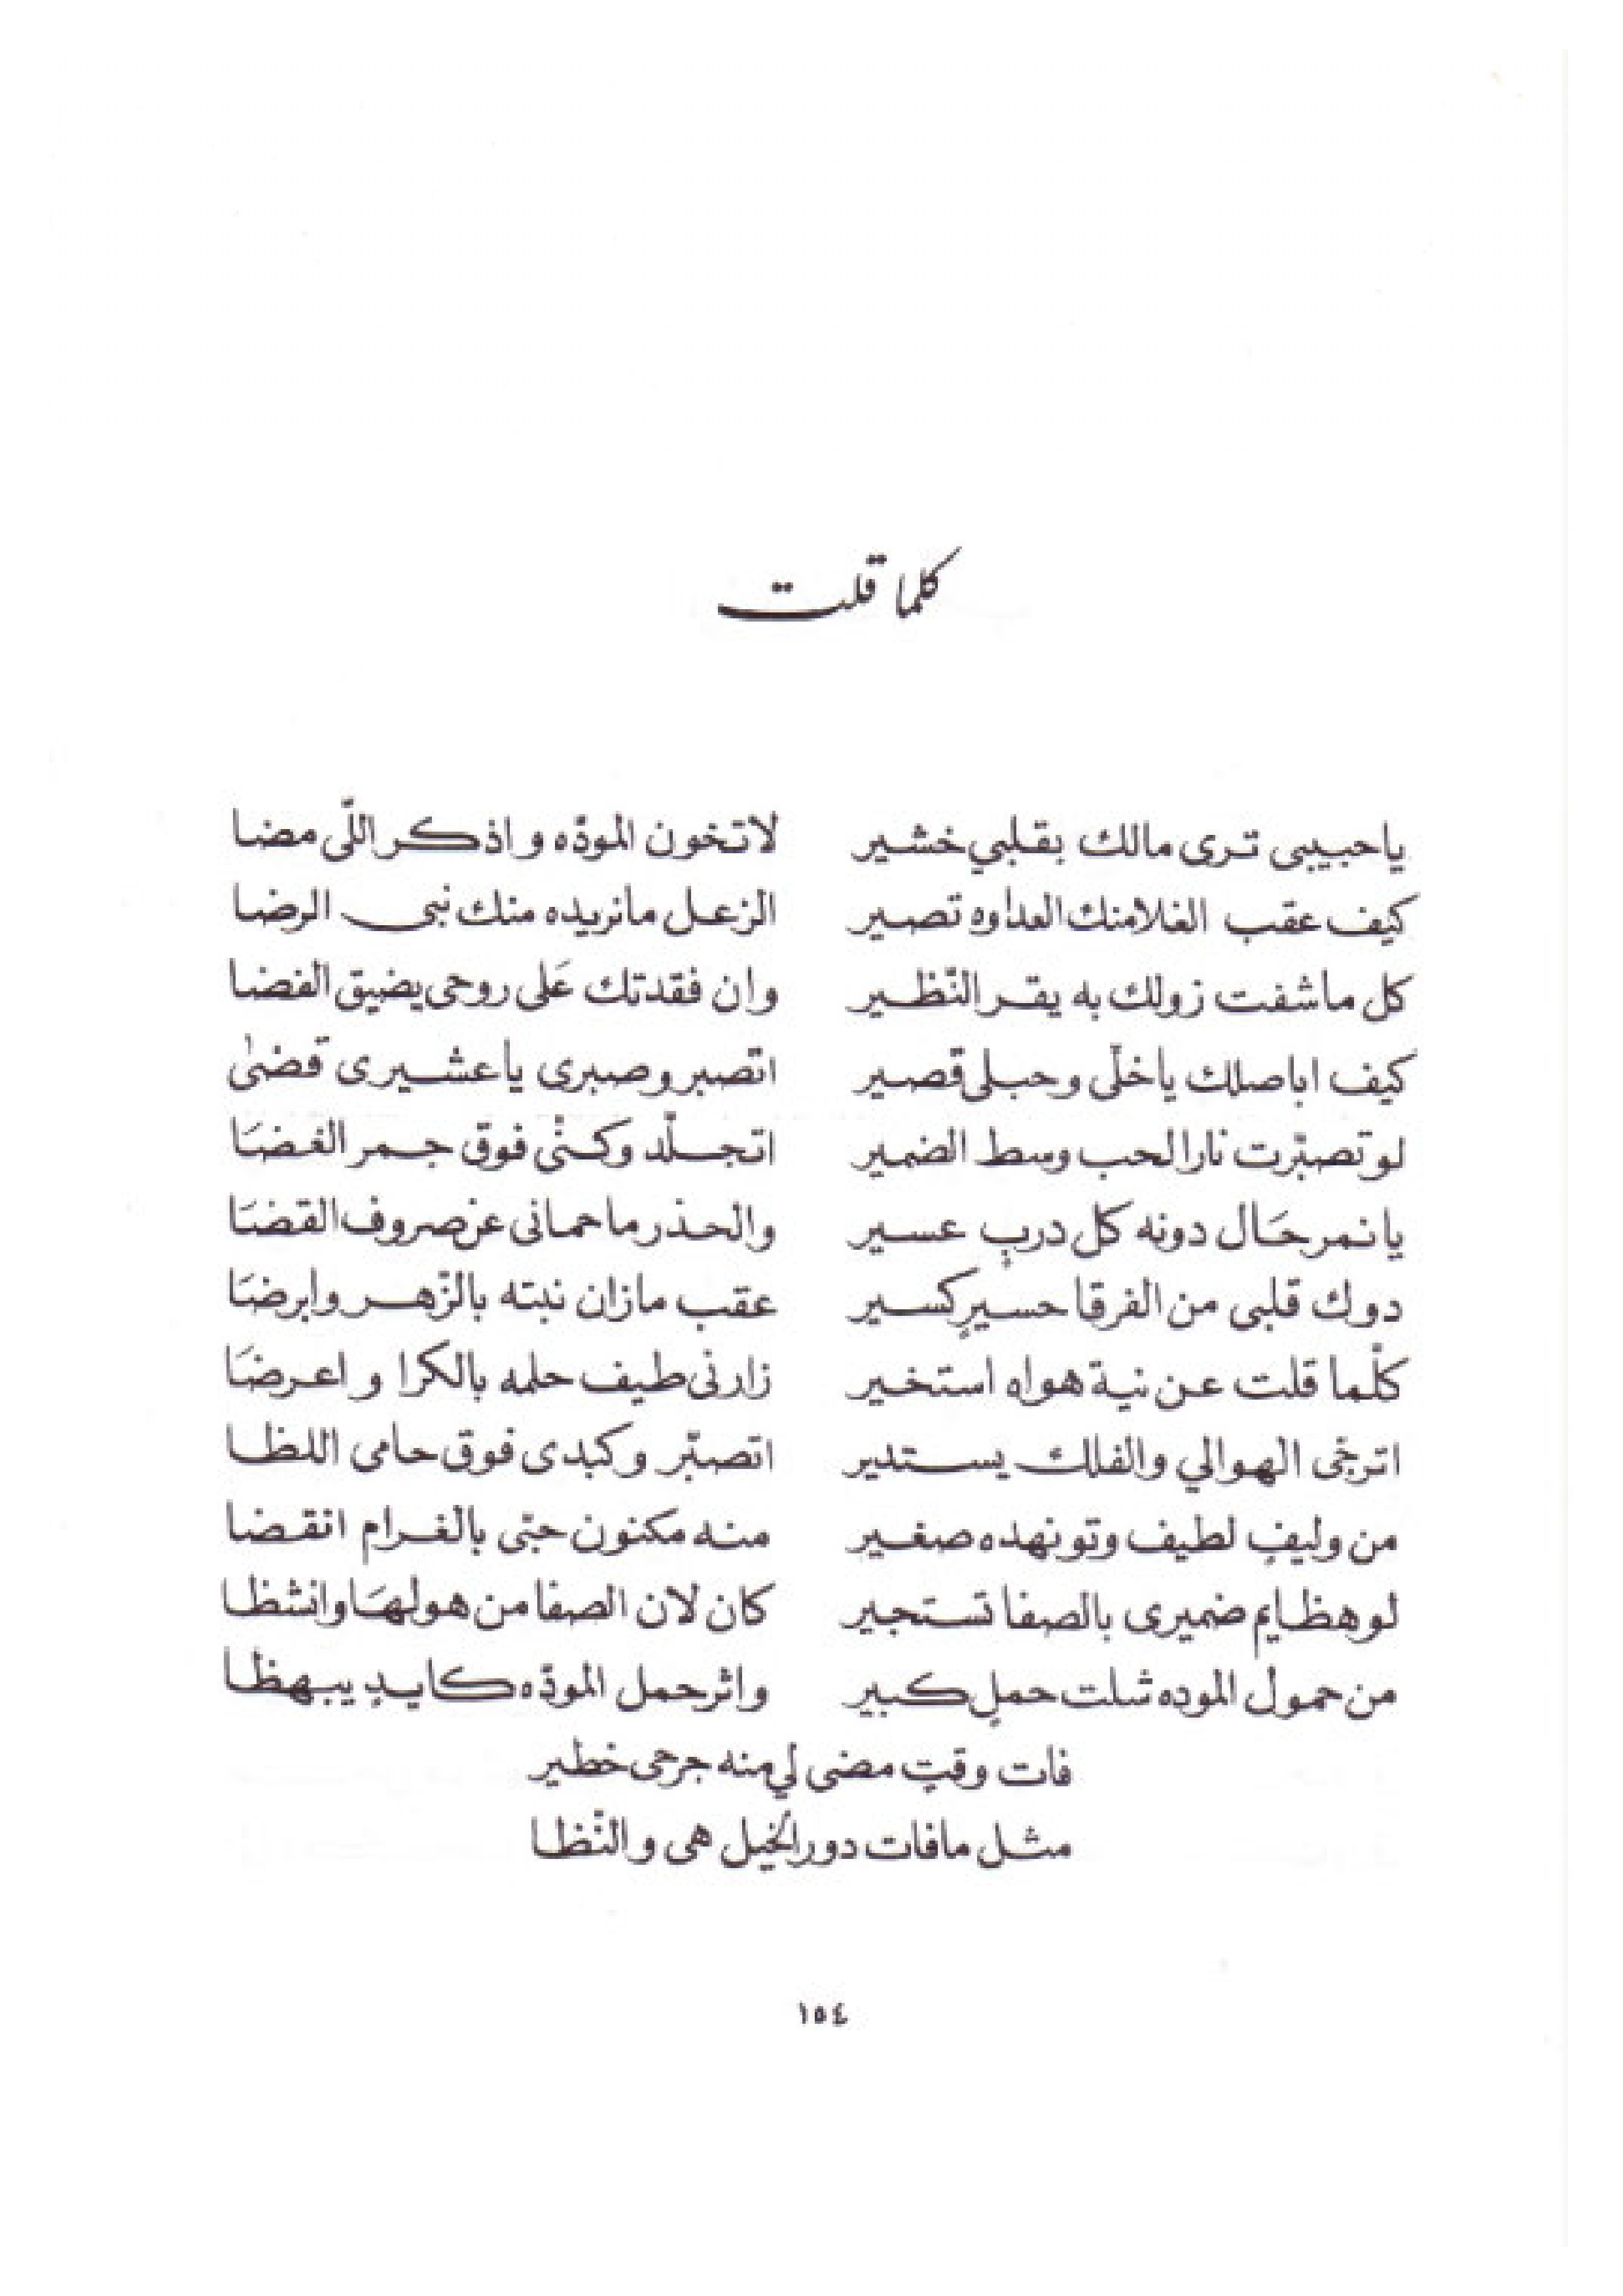 كلما قلت
ياحبيبى ترى مالك بقلبي خشير    لاتخون المودّه واذكر اللّى مضا
كيف عقب الغلا منك العداوه تصير    الزعل مانريده منك نبى الرضا
كل ماشفت زولك به يقر النّظير    وان فقدتك عَلى روحى يضيق الفضا
كيف اباصلك ياخلّى وحبلى قصير    اتصبر وصبرى ياعشيرى قضىٰ
لو تصبّرت نار الحب وسط الضمير    اتجلّد وكنّى فوق جمر الغضَا
يانمر حَال دونه كل دربٍ عسير    والحذر ماحمانى عن صروف القضَا
دوك قلبى من الفرقا حسيرٍ كسير    عقب مازان نبته بالزّهر وابرضَا
كلّما قلت عن نية هواه استخير    زارنى طيف حلمه بالكرا واعرضَا
اترجّى الهوالي والفلك يستدير    اتصبّر وكبدى فوق حامى اللظا
من وليفٍ لطيف وتو نهده صغير    منه مكنون حبّى بالغرام انقضا
لو هظايم ضميرى بالصفا تستجير    كان لان الصفا من هولهَا وانشظا
من حمول الموده شلت حملٍ كبير    واثر حمل المودّه كايدٍ يبهظا
فات وقتٍ مضى لي منه جرحى خطير
مثل مافات دور الخيل هى والنّظا
١٥٤